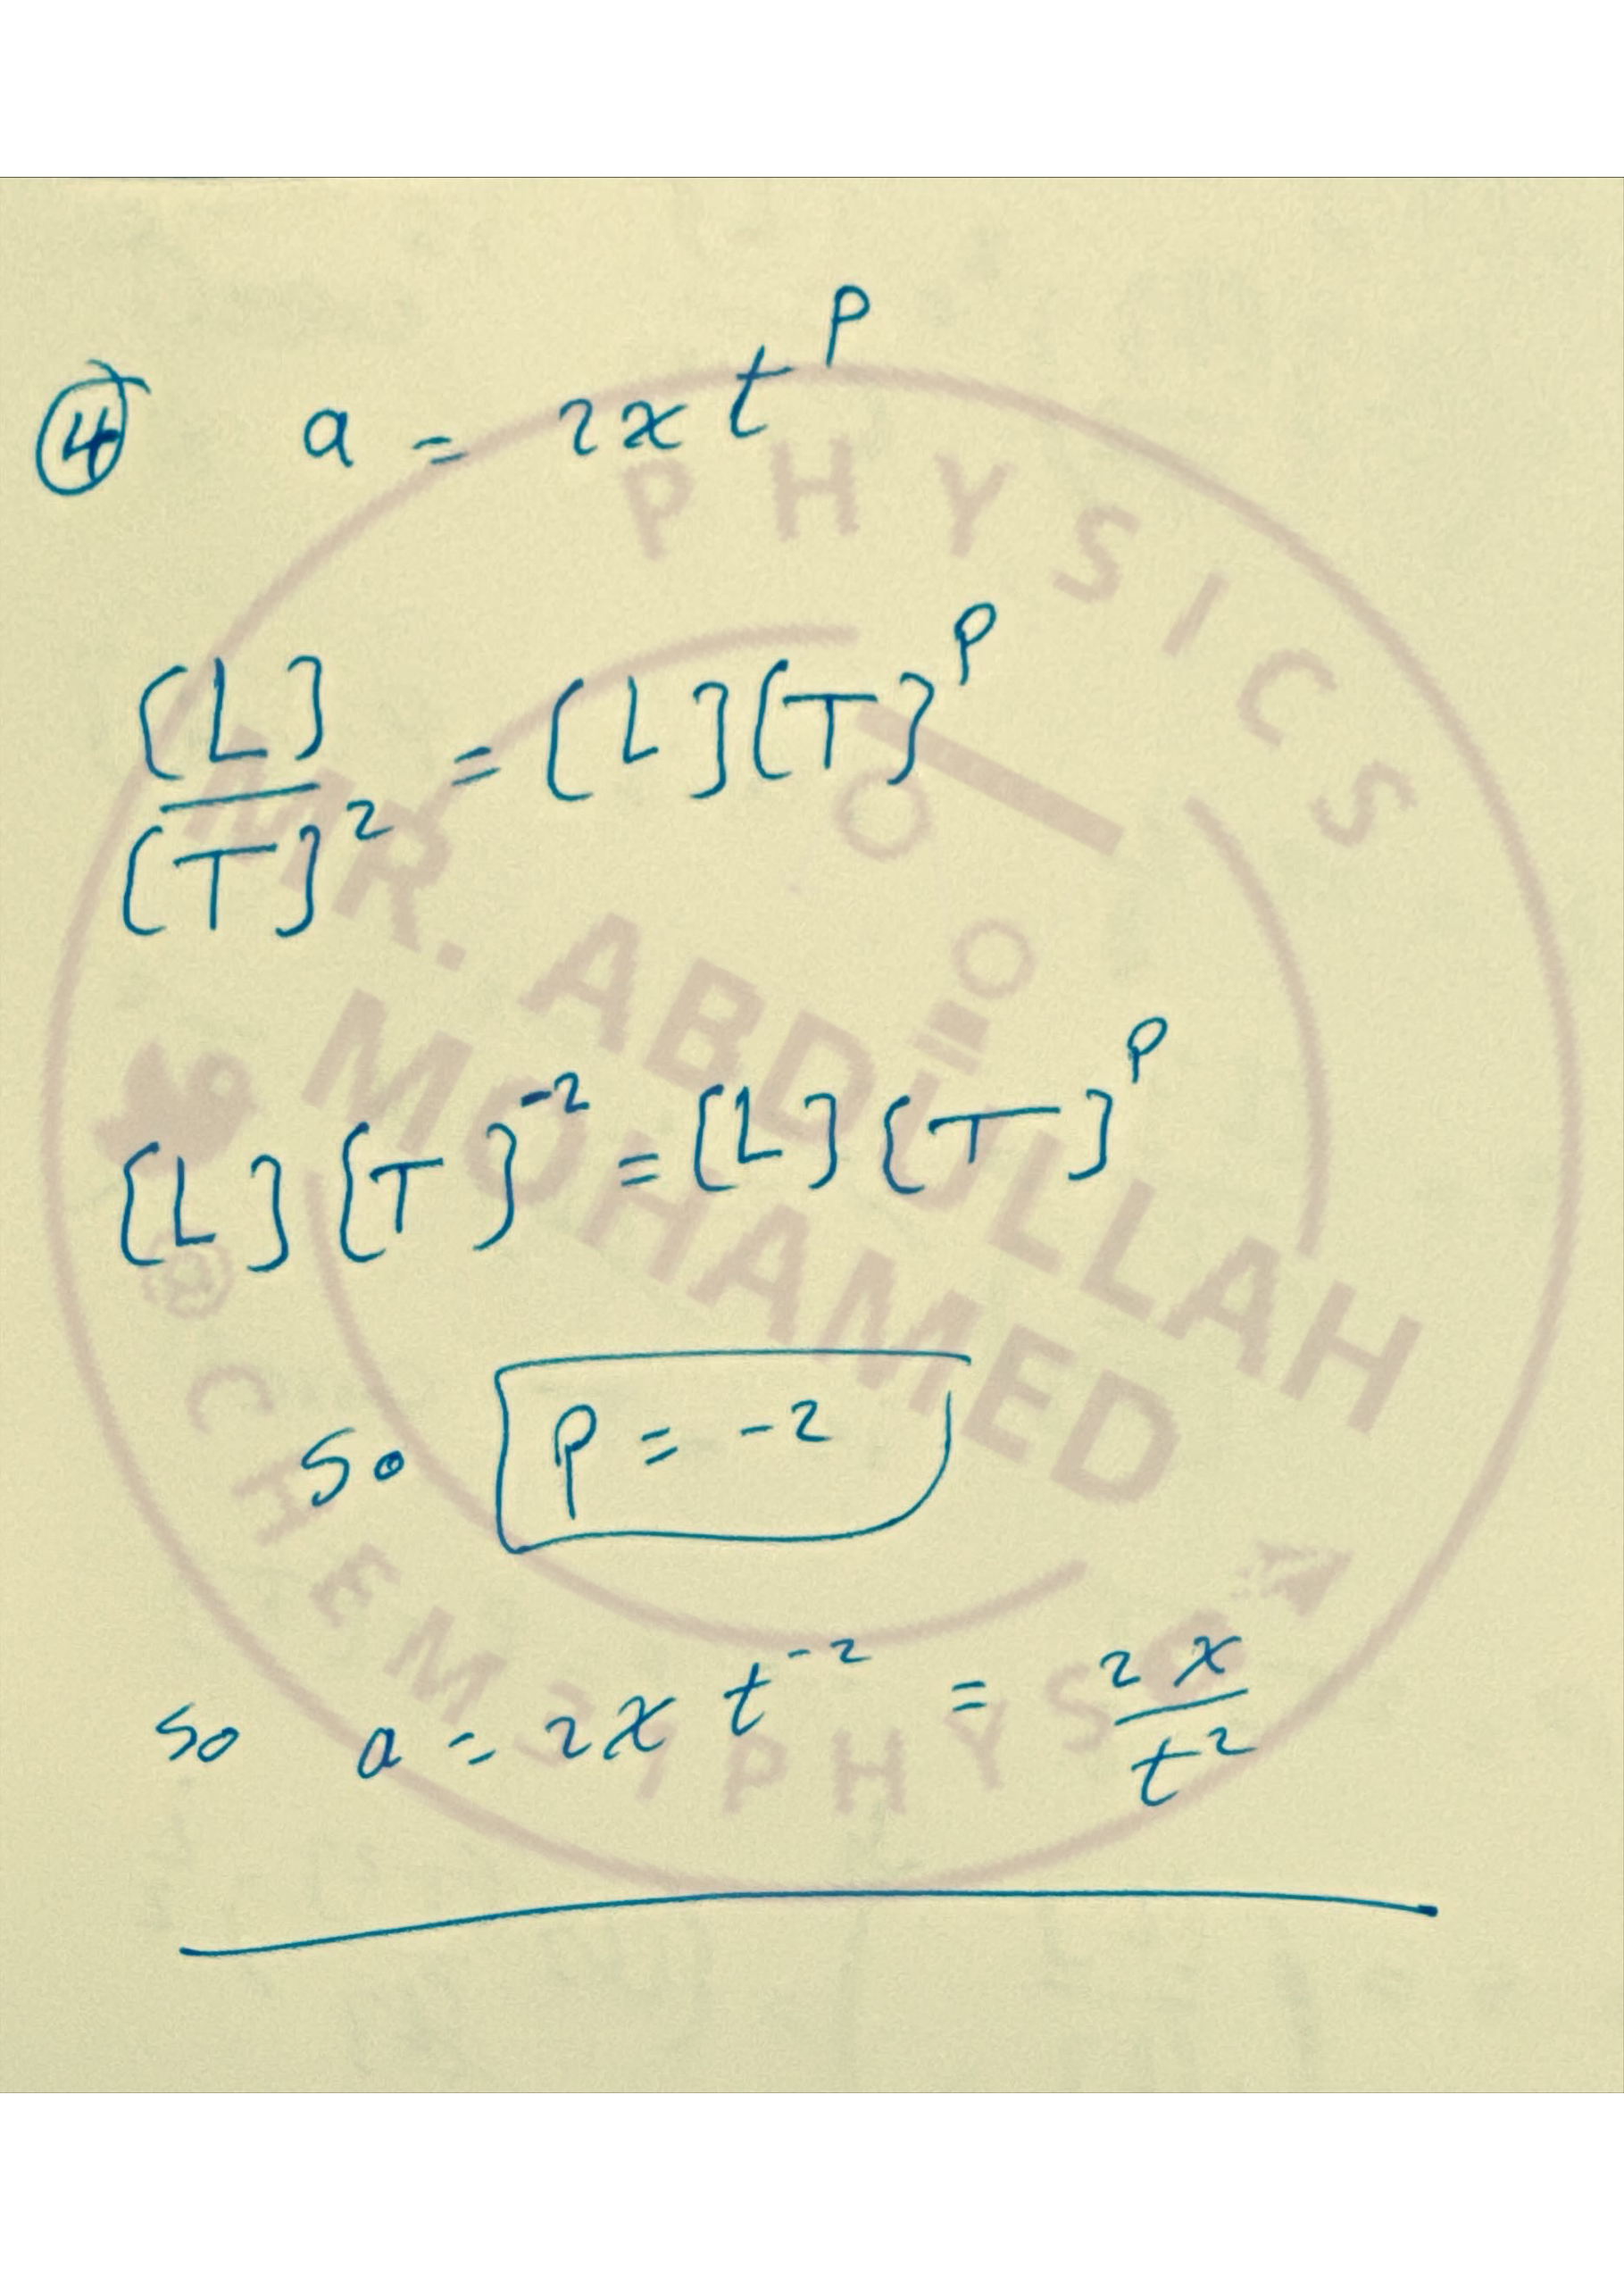 ④ a = 2x t^P
[L]/[T]^2 = [L][T]^P
[L][T]^-2 = [L][T]^P
So P = -2
So a = 2x t^-2 = 2x/t^2
PHYSICS
MR. ABDULLAH
MOHAMED